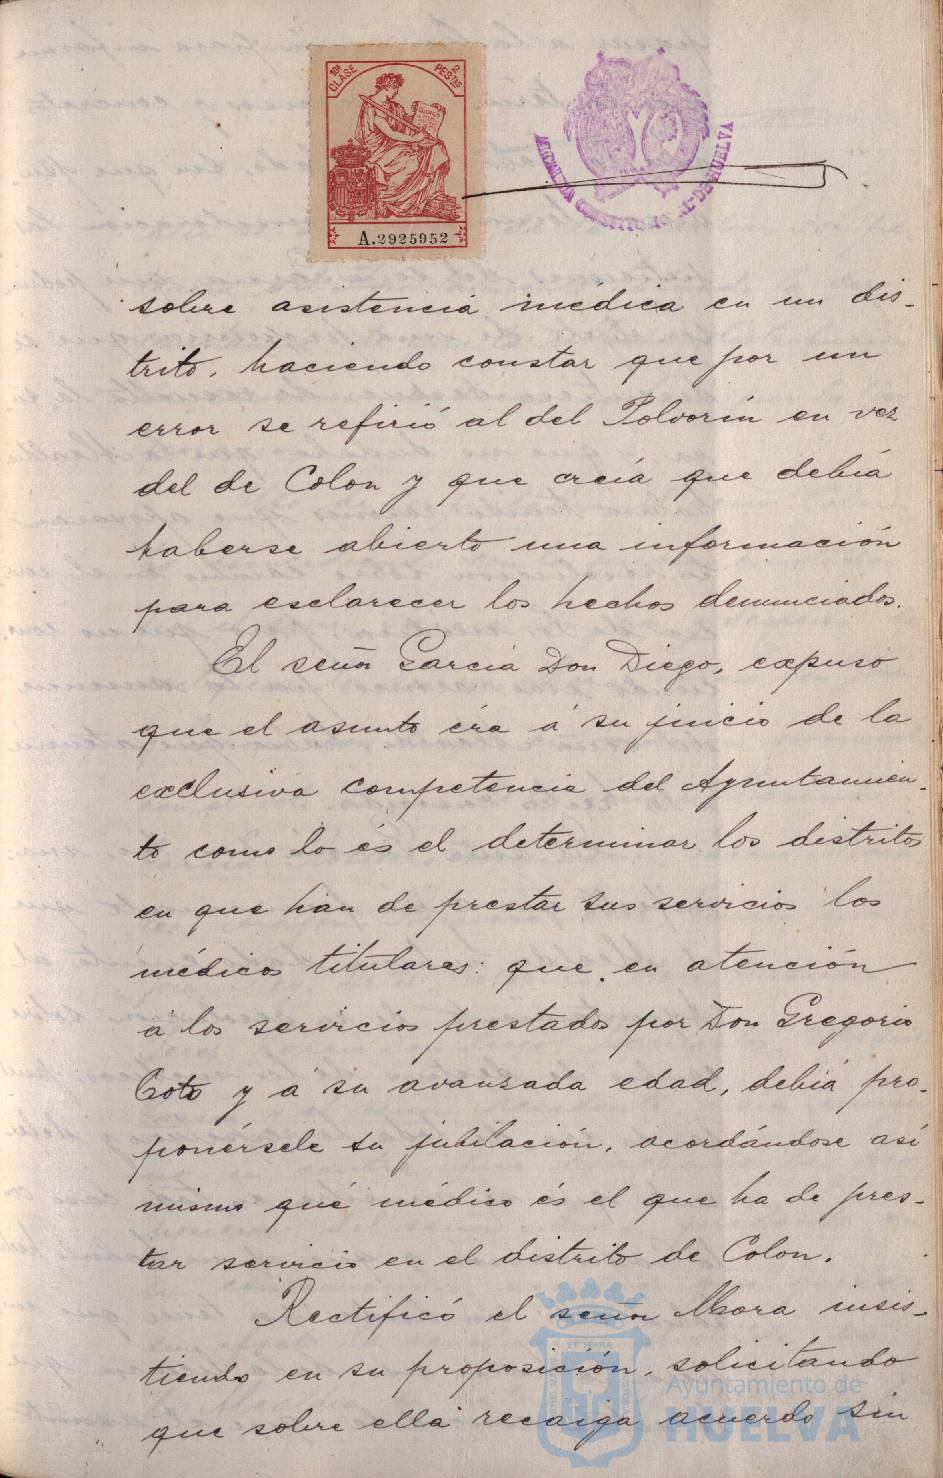 10ª CLASE
2 PESTAS
A.2925952
CONSTITU DE HUELVA
sobre asistencia médica en un dis-
trito, haciendo constar que por un
error se refirió al del Polvorín en vez
del de Colon y que creía que debía
haberse abierto una información
para esclarecer los hechos denunciados.
El señor García Don Diego, expuso
que el asunto éra á su juicio de la
exclusiva competencia del Ayuntamien-
to como lo és el determinar los distritos
en que han de prestar sus servicios los
médicos titulares: que en atención
á los servicios prestados por Don Gregorio
Coto y á su avanzada edad, debía pro-
ponérsele su jubilación, acordándose así
mismo qué médico és el que ha de pres-
tar servicio en el distrito de Colon.
Rectificó el señor Mora insis-
tiendo en su proposición, solicitando
que sobre ella recaiga acuerdo sin
Ayuntamiento de
HUELVA